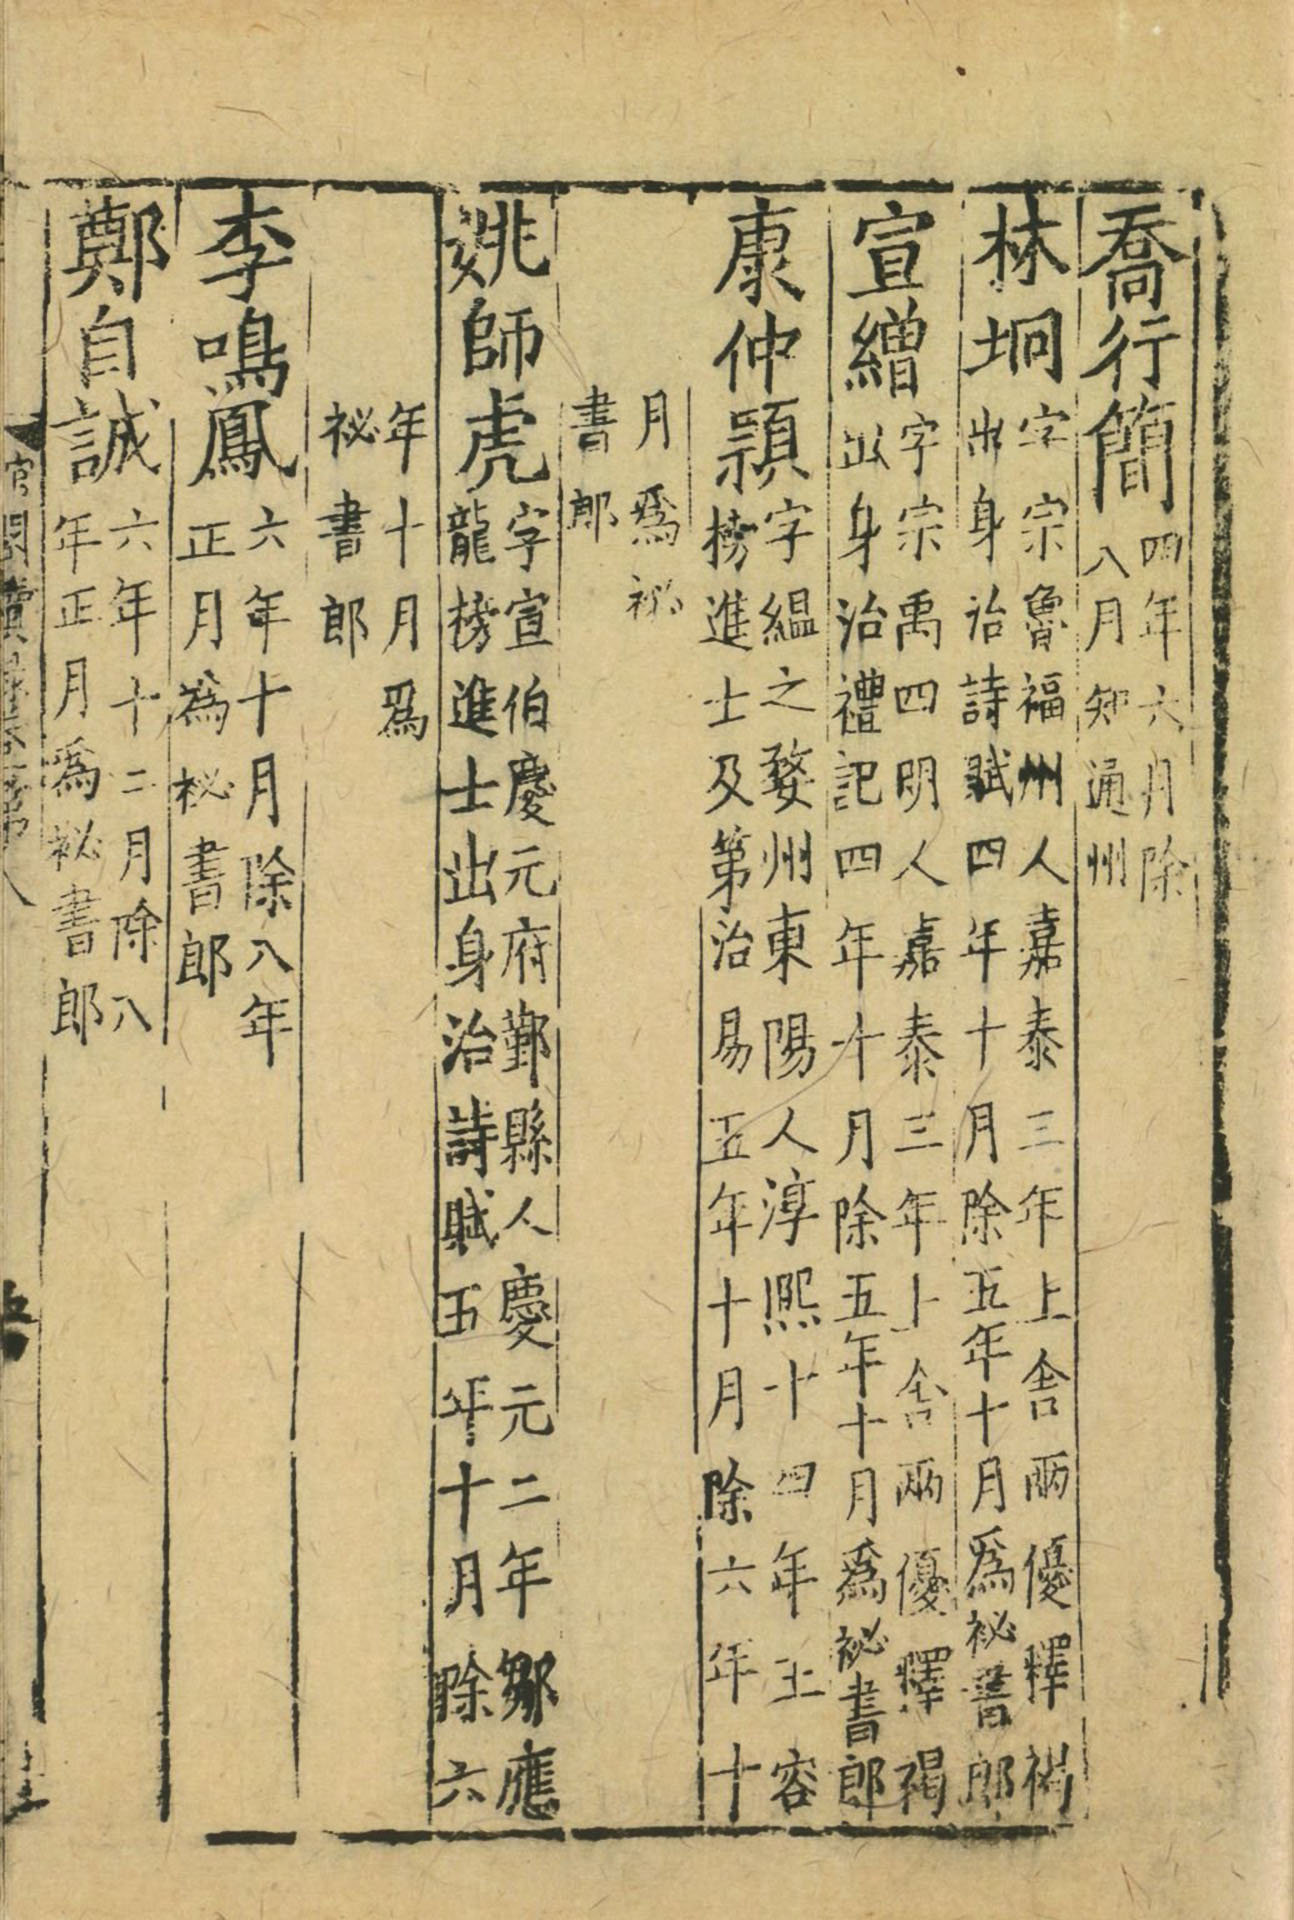 喬行簡四年六月除
八月知通州
林垌字宗魯福州人嘉泰三年上舍兩優釋褐
出身治詩賦四年十月除五年十月爲祕書郎
宣繒字宗禹四明人嘉泰三年上舍兩優釋褐
出身治禮記四年十月除五年十月爲祕書郎
康仲穎字縕之婺州東陽人淳熙十四年王容
榜進士及第治易五年十月除六年十
月爲祕
書郎
姚師虎字宣伯慶元府鄞縣人慶元二年鄒應
龍榜進士出身治詩賦五年十月除六
年十月爲
祕書郎
李鳴鳳六年十月除八年
正月爲祕書郎
鄭自誠六年十二月除八
年正月爲祕書郎